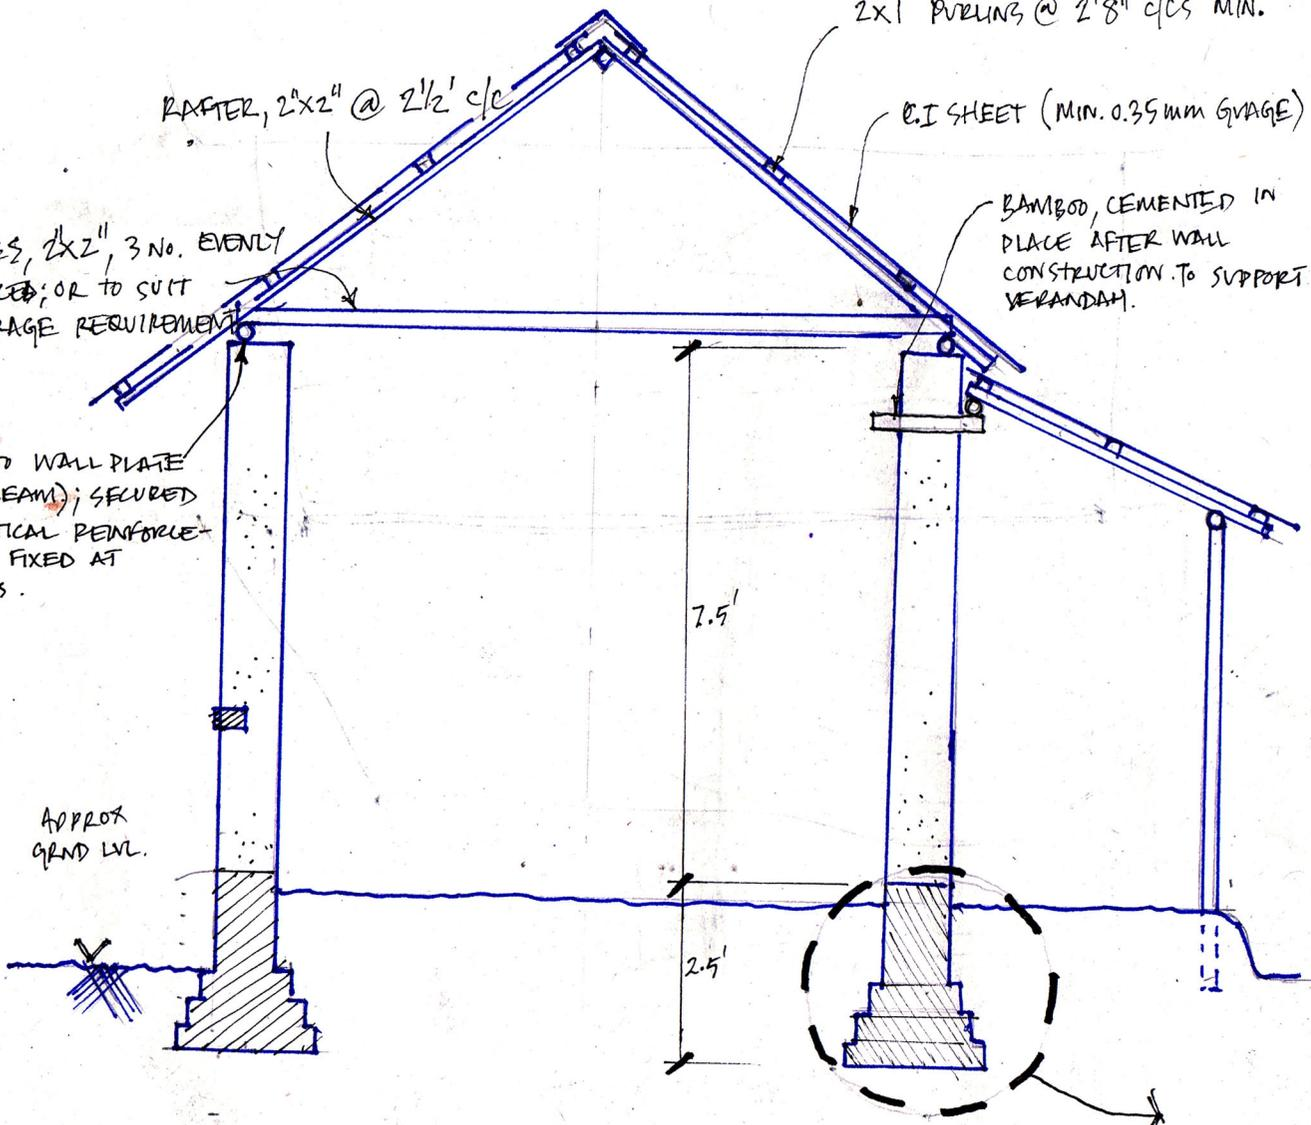 2x1 PURLINS @ 2'8" c/cs MIN.
RAFTER, 2"x2" @ 2'1/2' c/c
C.I SHEET (MIN. 0.35mm GUAGE)
BAMBOO, CEMENTED IN
PLACE AFTER WALL
CONSTRUCTION. TO SUPPORT
VERANDAH.
2"x2", 3 No. EVENLY
; OR TO SUIT
RAGE REQUIREMENT
O WALL PLATE
EAM); SECURED
TICAL REINFORCE-
FIXED AT
S.
7.5'
APPROX
GRND LVL.
2.5'